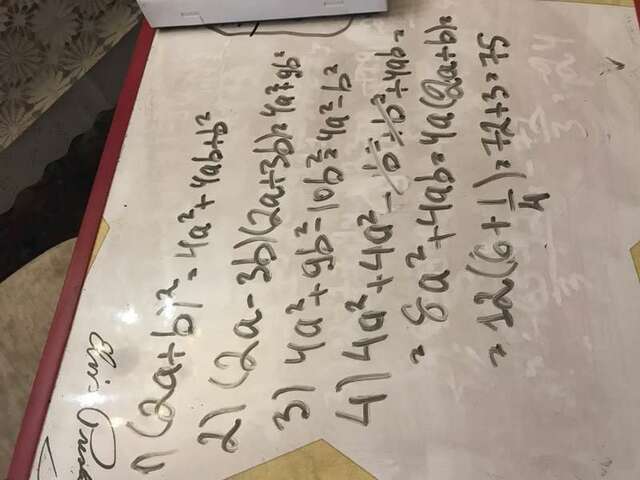 1) (2a+b)² = 4a²+4ab+b²
2) (2a-3b)(2a+3b)=4a²+9b²
3) 4a²+9b²-10b²=4a²-b²
4) 4a²+4a²-b²+b²+4ab=
= 8a²+4ab=4a(2a+b)=
= 12(6+1/4)=72+3=75